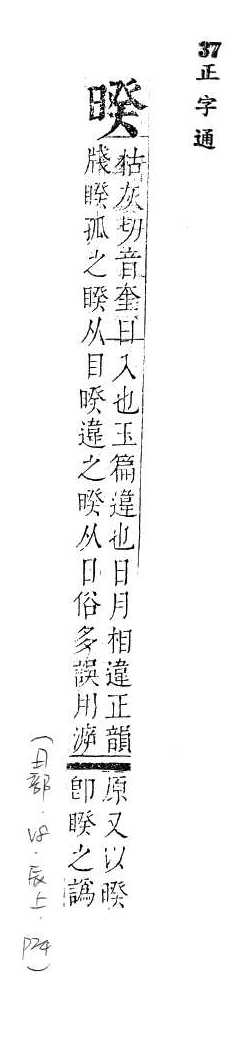 37 正字通
暌
枯灰切音奎日入也玉篇違也日月相違正韻
牋睽孤之睽从目暌違之暌从日俗多誤用溯
原又以暌
即睽之譌
(日部．V8．辰上．P24)